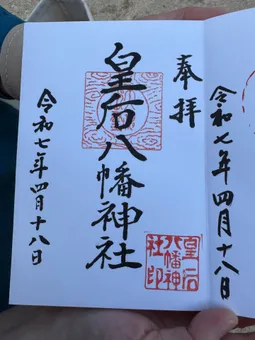 奉拝
皇后八幡神社
令和七年四月十八日
皇后
八幡神
社印
令和七年四月十八日